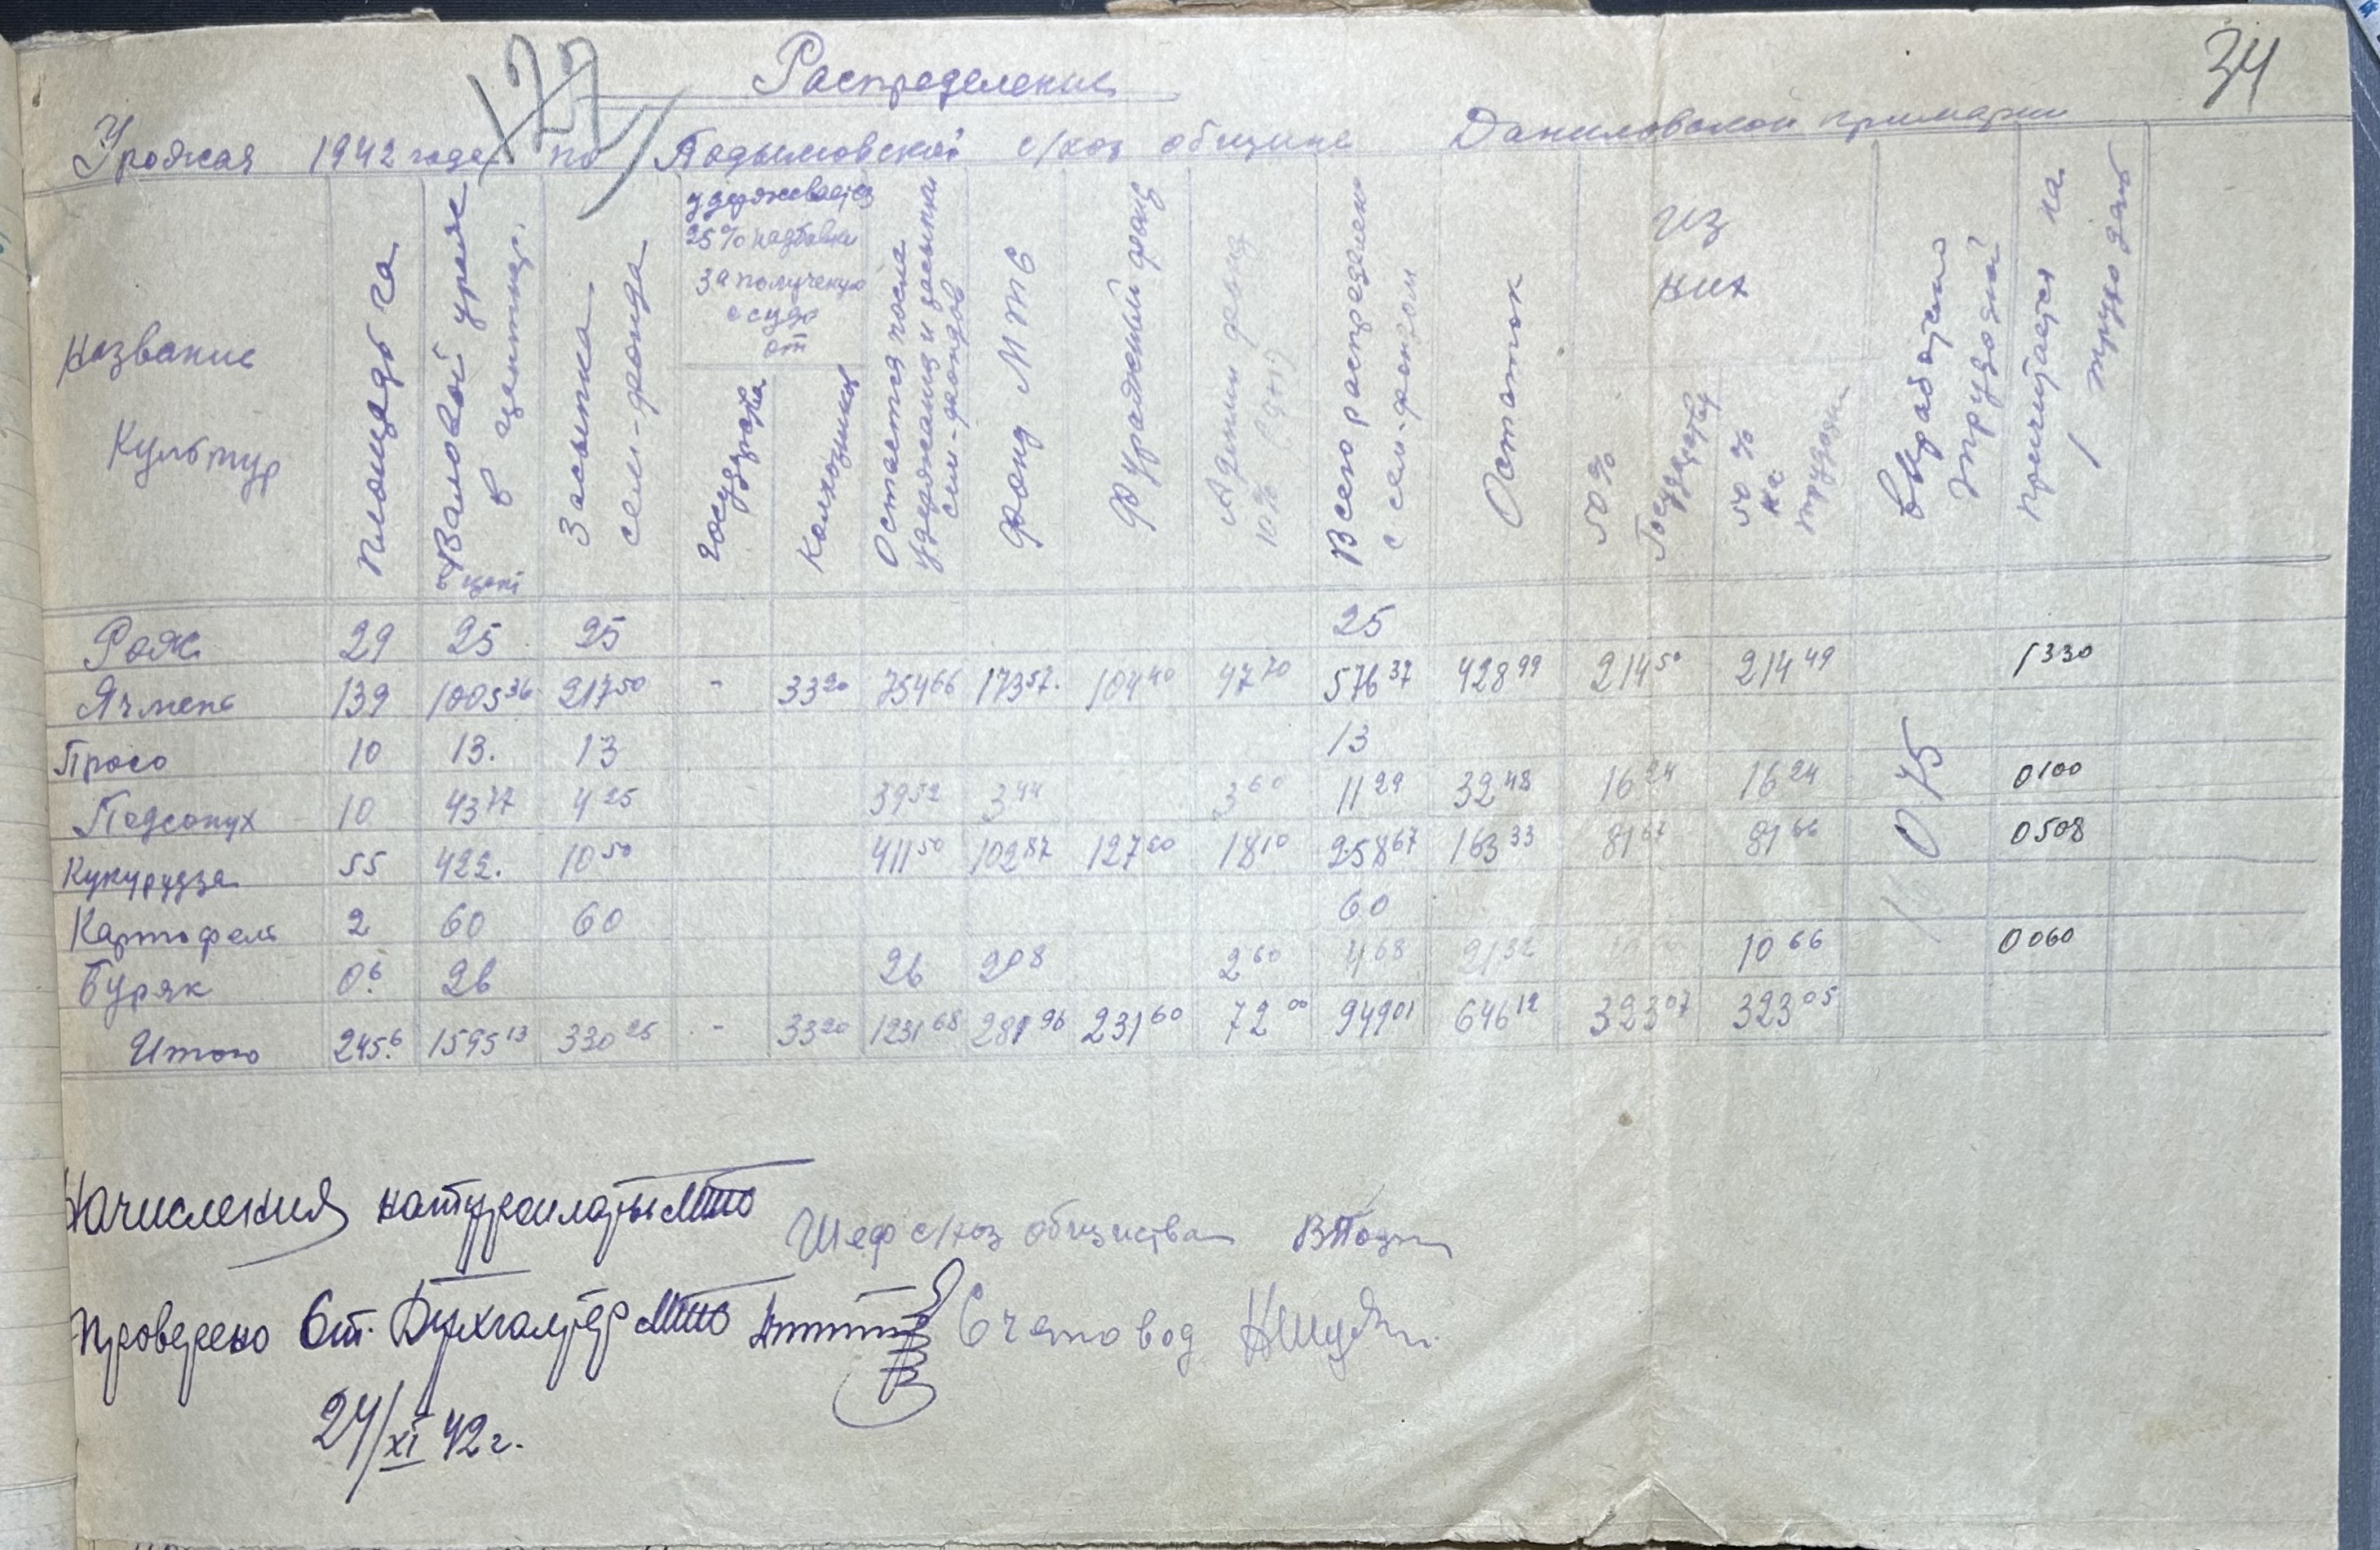 34
127
Распределение
Урожая 1942 года по Кодымовской с/хоз общине Даниловской примарии
Название Культур
Площадь га
Валовой урожаю в центнер.
в цент
Засыпка сем-фонда
удерживается 25% надбавки за полученую ссуду от
государства
Колхозника
Остается после удержания и засыпки сем-фондов
Фонд МТС
Фуражный фонд
Админ фонд 10%
Всего распределен с сем. фондом
Остаток
из них
50% Государству
50% на трудодни
Выработано трудодней
причитается на 1 трудодень
Рожь 29 25 25 25
Ячмень 139 1005 36 217 50 - 33 20 754 66 173 57. 104 40 47 70 576 37 428 99 214 50 214 49 1330
Просо 10 13. 13 13
Подсонух 10 43 77 4 25 39 52 3 44 3 60 11 29 32 48 16 24 16 24 0100
Кукурудза 55 422. 10 50 411 50 102 87 127 20 18 10 258 67 163 33 81 67 81 66 0508
Картофель 2 60 60 60
Буряк 0.6 26 26 2 08 2 60 4 68 21 32 10 66 0060
Итого 245.6 1595 13 330 25 - 33 20 1231 68 281 96 231 60 72 00 949 01 646 12 323 07 323 05
Начисления натуроплаты МТС
Шеф с/хоз общества
Проверено Ст. Бухгалтер МТС
Счетовод
24/XI 42 г.